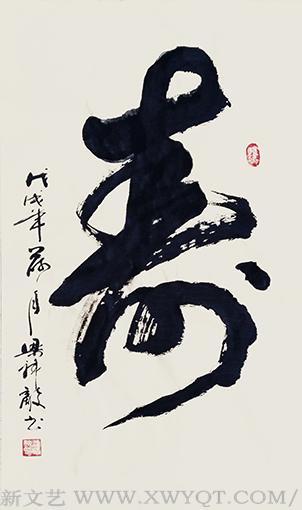 寿
戊戌年荷月梁科严书
新文艺 WWW.XWYQT.COM/